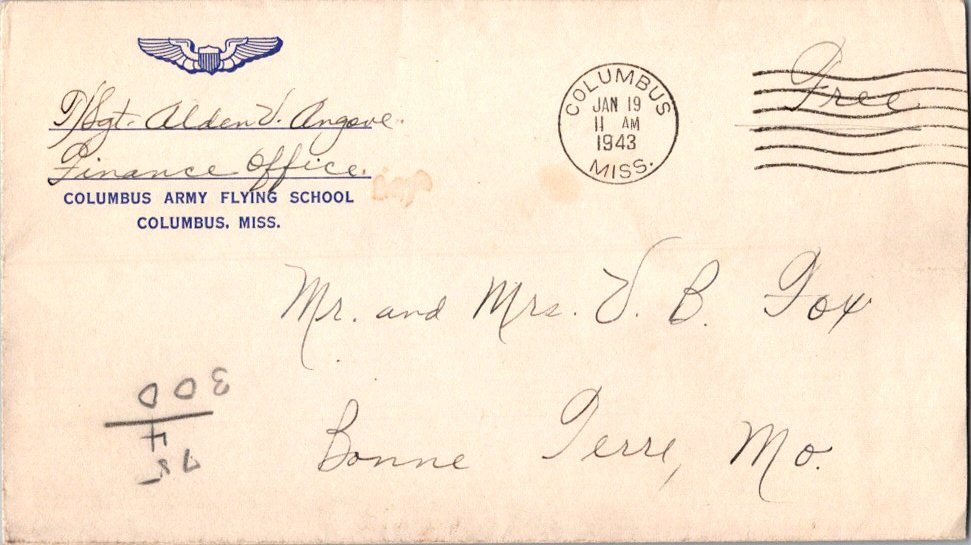 T/Sgt. Alden V. Angove.
Finance Office.
COLUMBUS ARMY FLYING SCHOOL
COLUMBUS, MISS.
COLUMBUS
JAN 19
11 AM
1943
MISS.
Free
Mr. and Mrs. V. B. Fox
Bonne Terre, Mo.
75
4
300